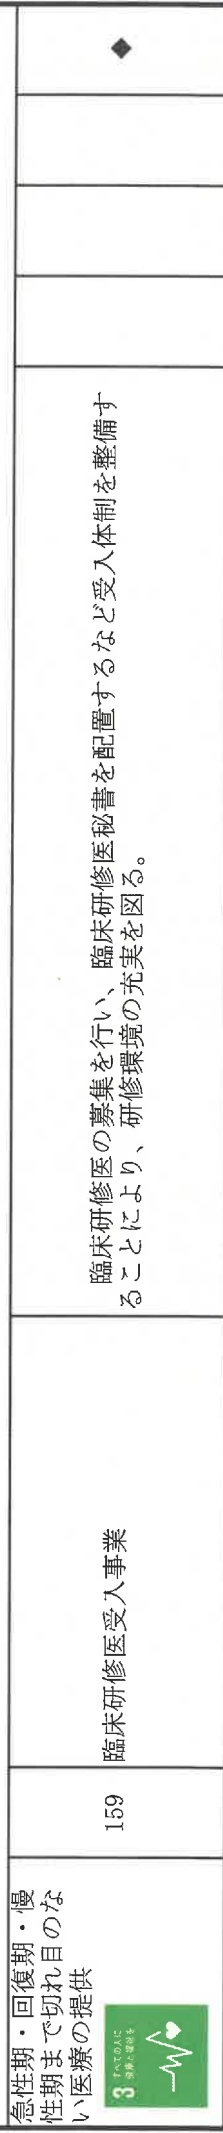 急性期・回復期・慢
性期まで切れ目のな
い医療の提供
3 すべての人に
健康と福祉を
159
臨床研修医受入事業
臨床研修医の募集を行い、臨床研修医秘書を配置するなど受入体制を整備す
ることにより、研修環境の充実を図る。
◆